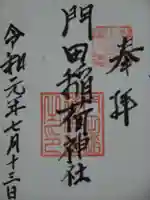 奉拝
門田稲荷神社
令和元年七月十三日